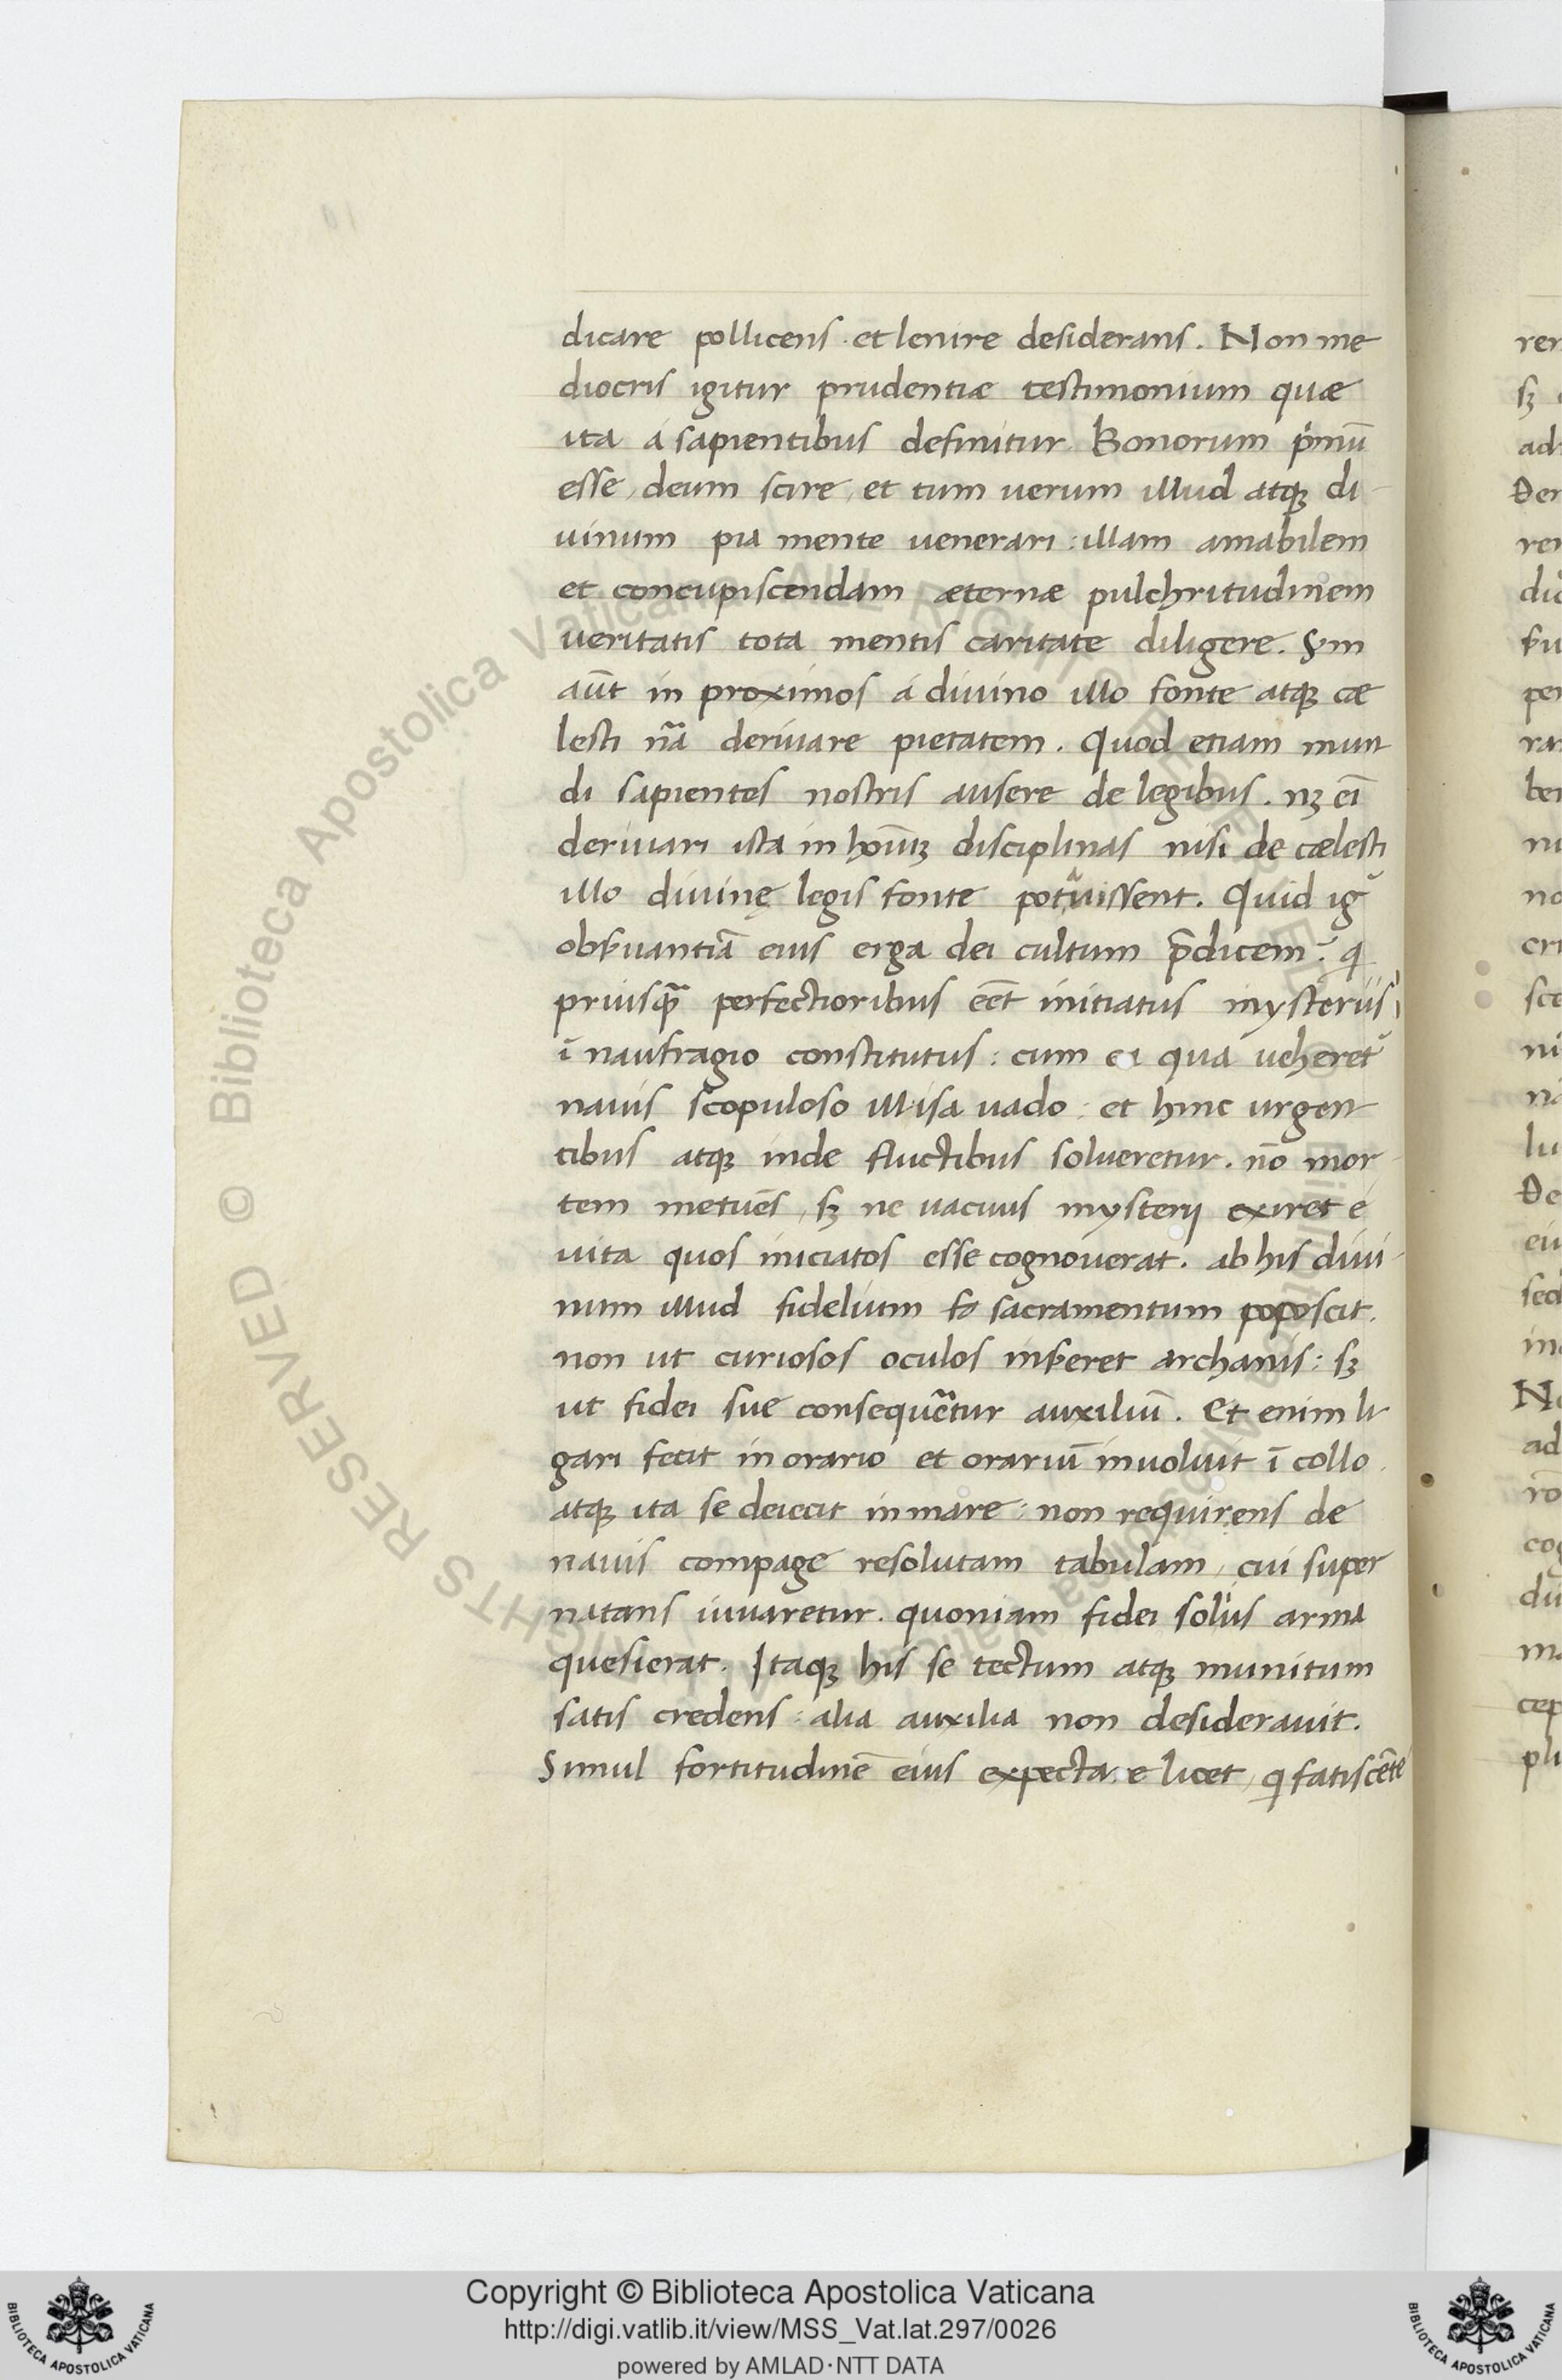 dicare pollicens · et lenire desiderans. Non me
diocris igitur prudentiæ testimonium quæ
ita á sapientibus definitur. Bonorum pimū
esse, deum scire, et tum uerum illud atq; di-
uinum pia mente uenerari: illam amabilem
et concupiscendam æternæ pulchritudinem
ueritatis tota mentis caritate diligere.
aūt in proximos á diuino illo fonte atq; cæ
lesti nāa deriuare pietatem. Quod etiam mun
di sapientes nostris ausere de legibus. nꝫ ei̅
deriuari ista in hoīuꝫ disciplinas nisi de cælesti
illo diuinę legis fonte potuissent. Quid ig̃
obẜuantiā eius erga dei cultum p̄dicem? q
priusq̃ perfectioribus eēt initiatus mysteriis
ī naufragio constitutus: cum ea qua ueheret᷑
nauis scopuloso illisa uado: et hinc urgen
tibus atq; inde fluctibus solueretur. nō mor-
tem metuēs, sꝫ ne uacuus mysterij exiret é
uita quos iniciatos esse cognouerat. ab his diui-
num illud fidelium sacramentum poposcit.
non ut curiosos oculos inẜeret archanis: sꝫ
ut fidei sue consequeretur auxiliū. Et enim li-
gari fecit in orario et orariū inuoluit ī collo.
atq; ita se deiecit in mare: non requirens de
nauis compage resolutam tabulam, cui super
natans iuuaretur. quoniam fidei solius arma
quesierat. Itaq; his se tectum atq; munitum
satis credens: alia auxilia non desiderauit.
Simul fortitudinē eius expectare licet, q fatiscēte
Biblioteca Apostolica Vaticana
RIGHTS RESERVED ©
Copyright © Biblioteca Apostolica Vaticana
http://digi.vatlib.it/view/MSS_Vat.lat.297/0026
powered by AMLAD·NTT DATA
BIBLIOTECA APOSTOLICA VATICANA
BIBLIOTECA APOSTOLICA VATICANA